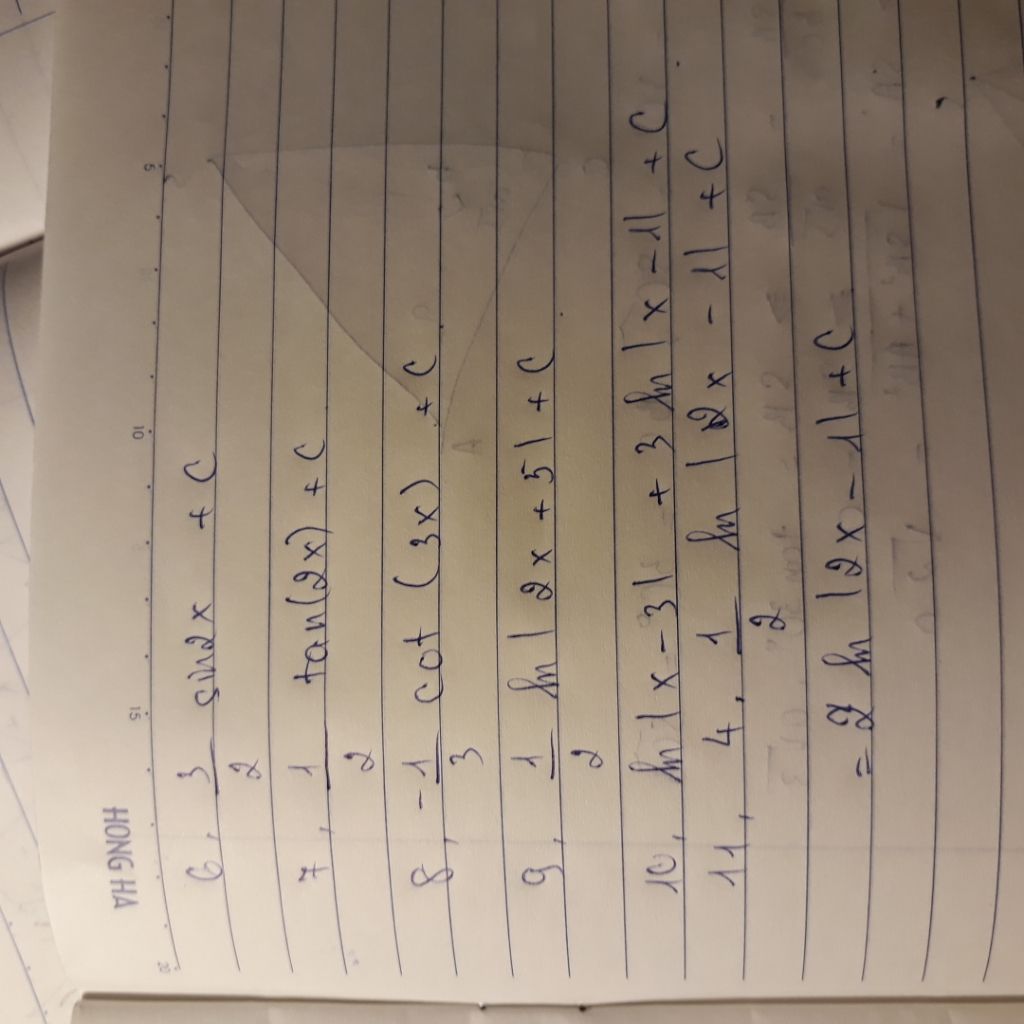 HONG HA
5 10 15 20
6, 3/2 sin2x + C
7, 1/2 tan(2x) + C
8, -1/3 cot (3x) + C
9, 1/2 ln |2x + 5| + C
10, ln |x - 3| + 3 ln |x - 1| + C
11, 4. 1/2 ln |2x - 1| + C
= 2 ln |2x - 1| + C